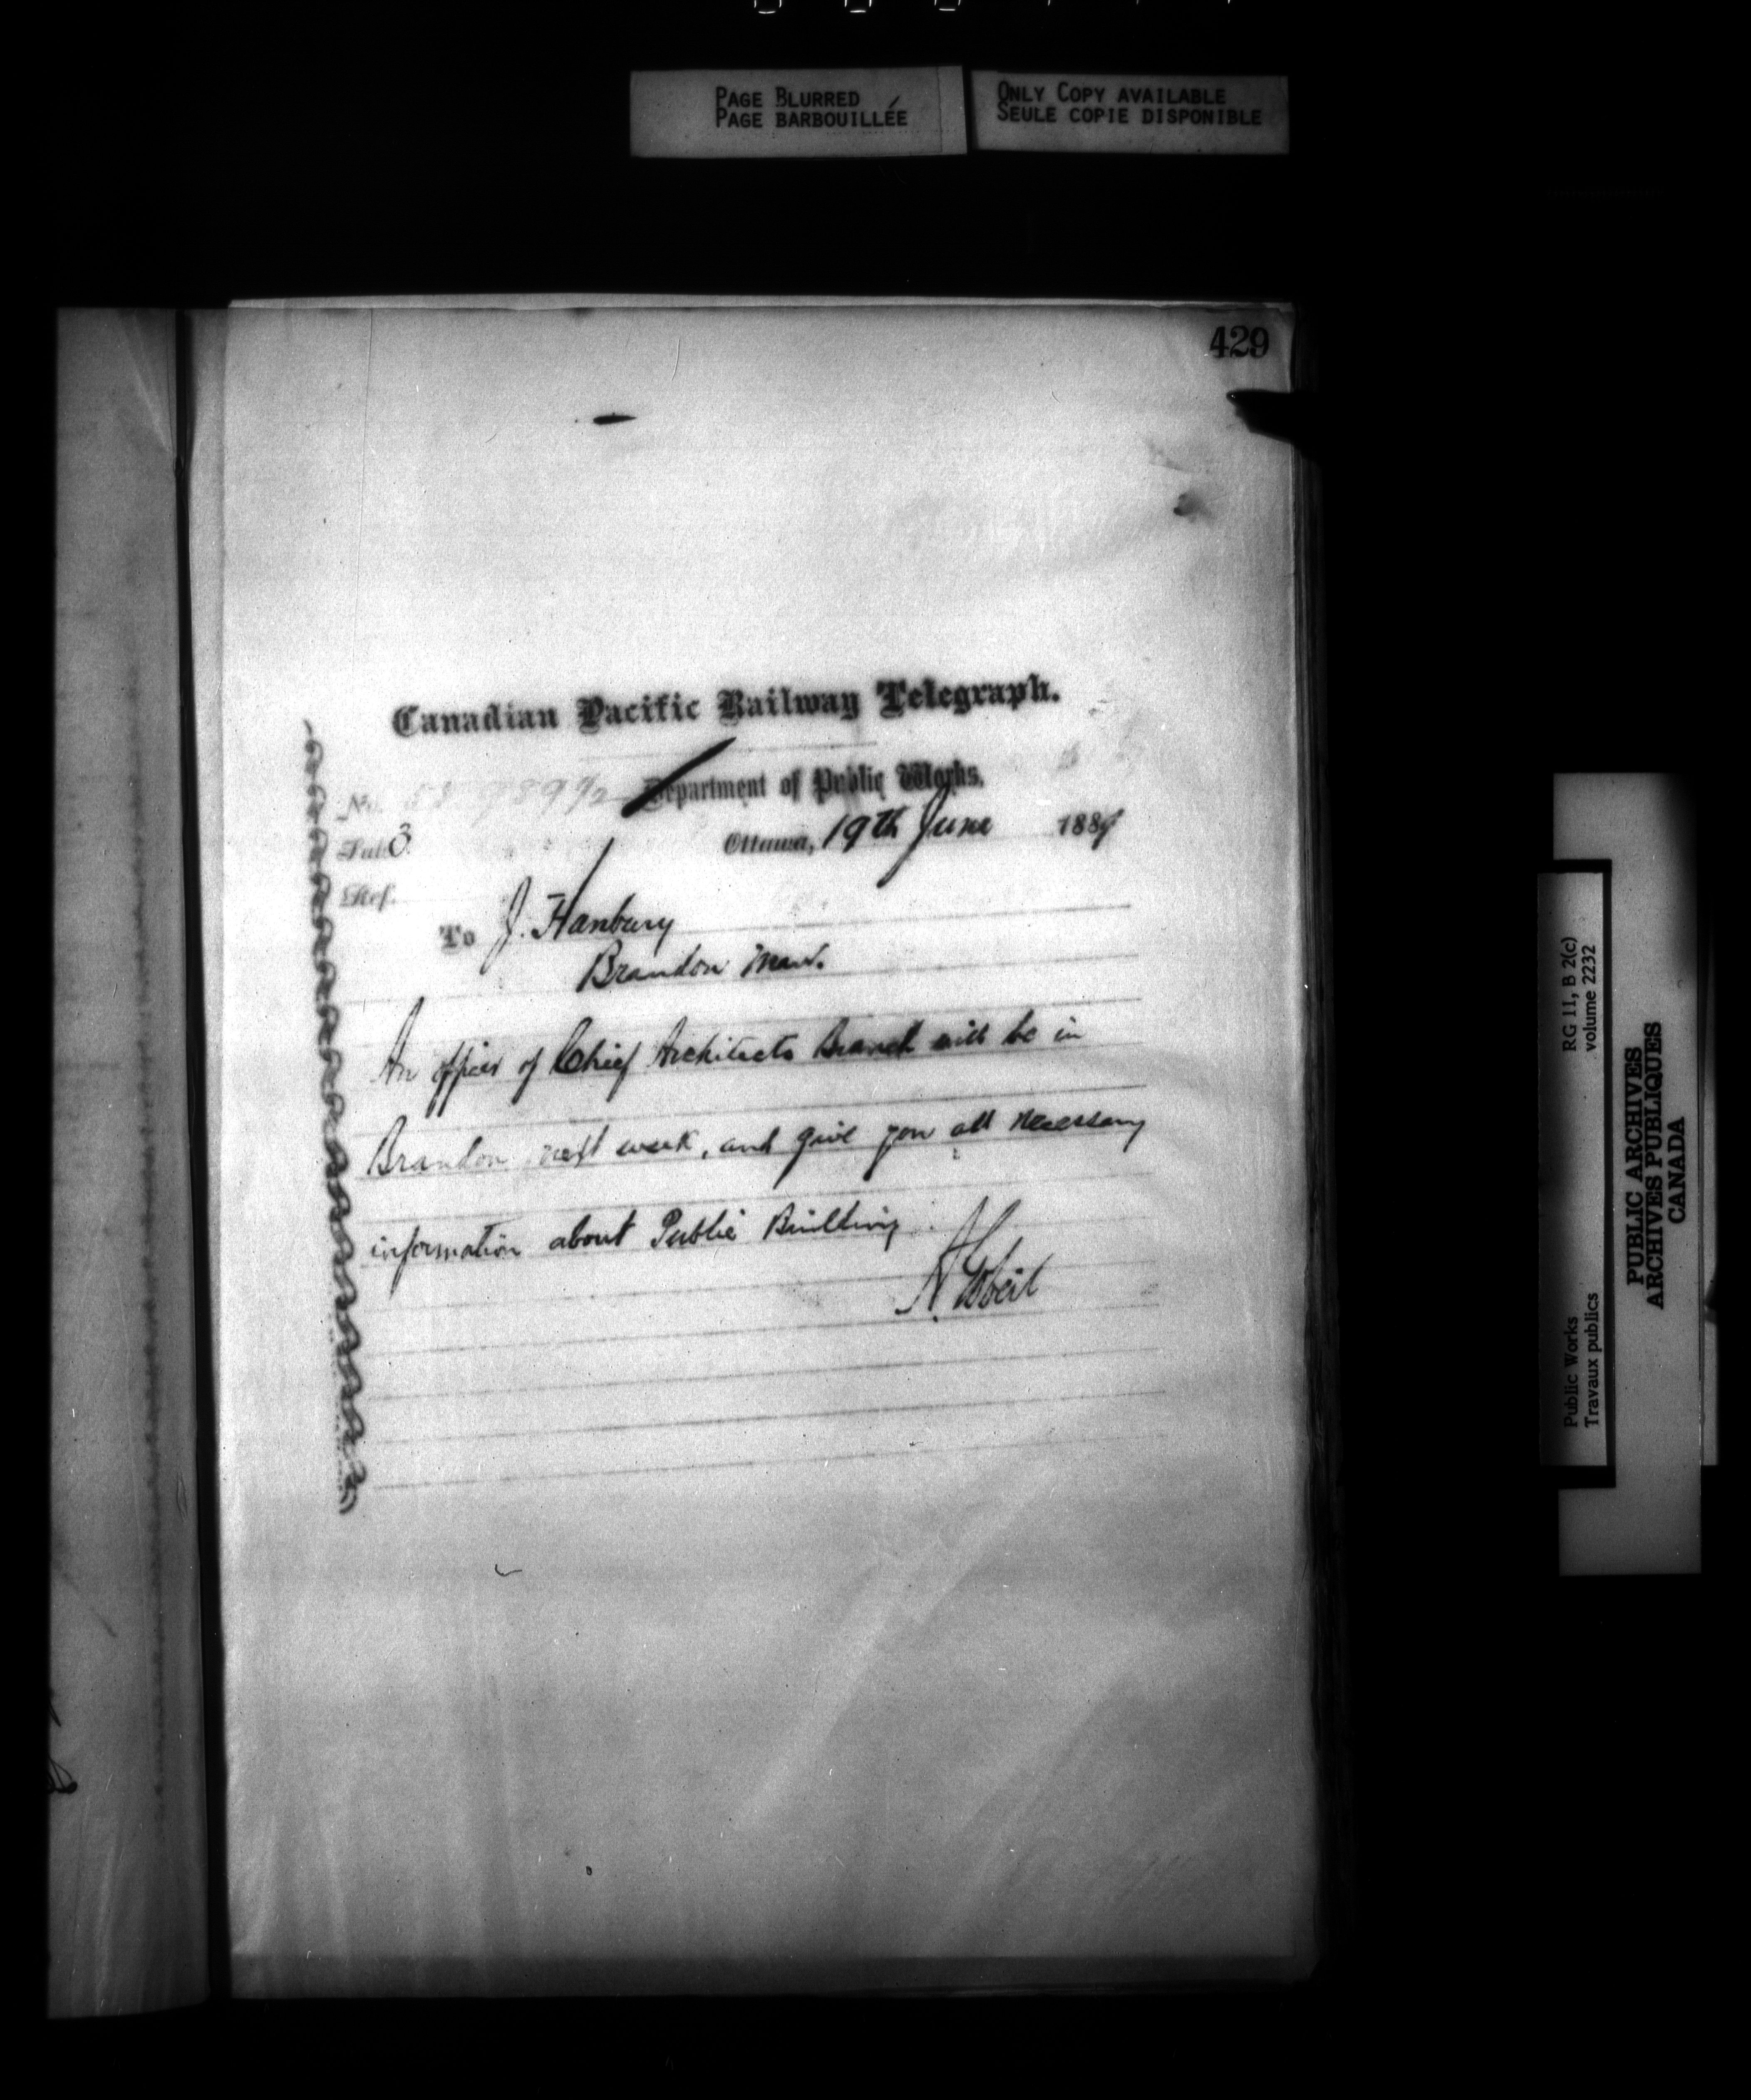 PAGE BLURRED
PAGE BARBOUILLÉE
ONLY COPY AVAILABLE
SEULE COPIE DISPONIBLE
429
Canadian Pacific Railway Telegraph.
Department of Public Works.
No.
Sub. 3
Ottawa, 19th June 1889
Ref.
To J. Hanbury
Brandon Man.
An officer of Chief Architects Branch will be in
Brandon next week, and give you all necessary
information about Public Building.
A Gobeil
Public Works
Travaux publics
RG 11, B 2(c)
volume 2232
PUBLIC ARCHIVES
ARCHIVES PUBLIQUES
CANADA